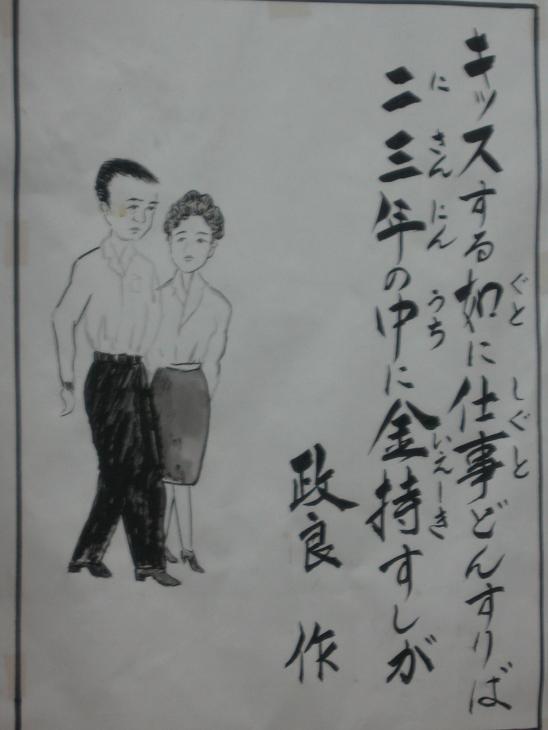 キッスする如に仕事どんすりば
ぐと しぐと
二三年の中に金持すしが
に さん にん うち いぇーき
政良 作